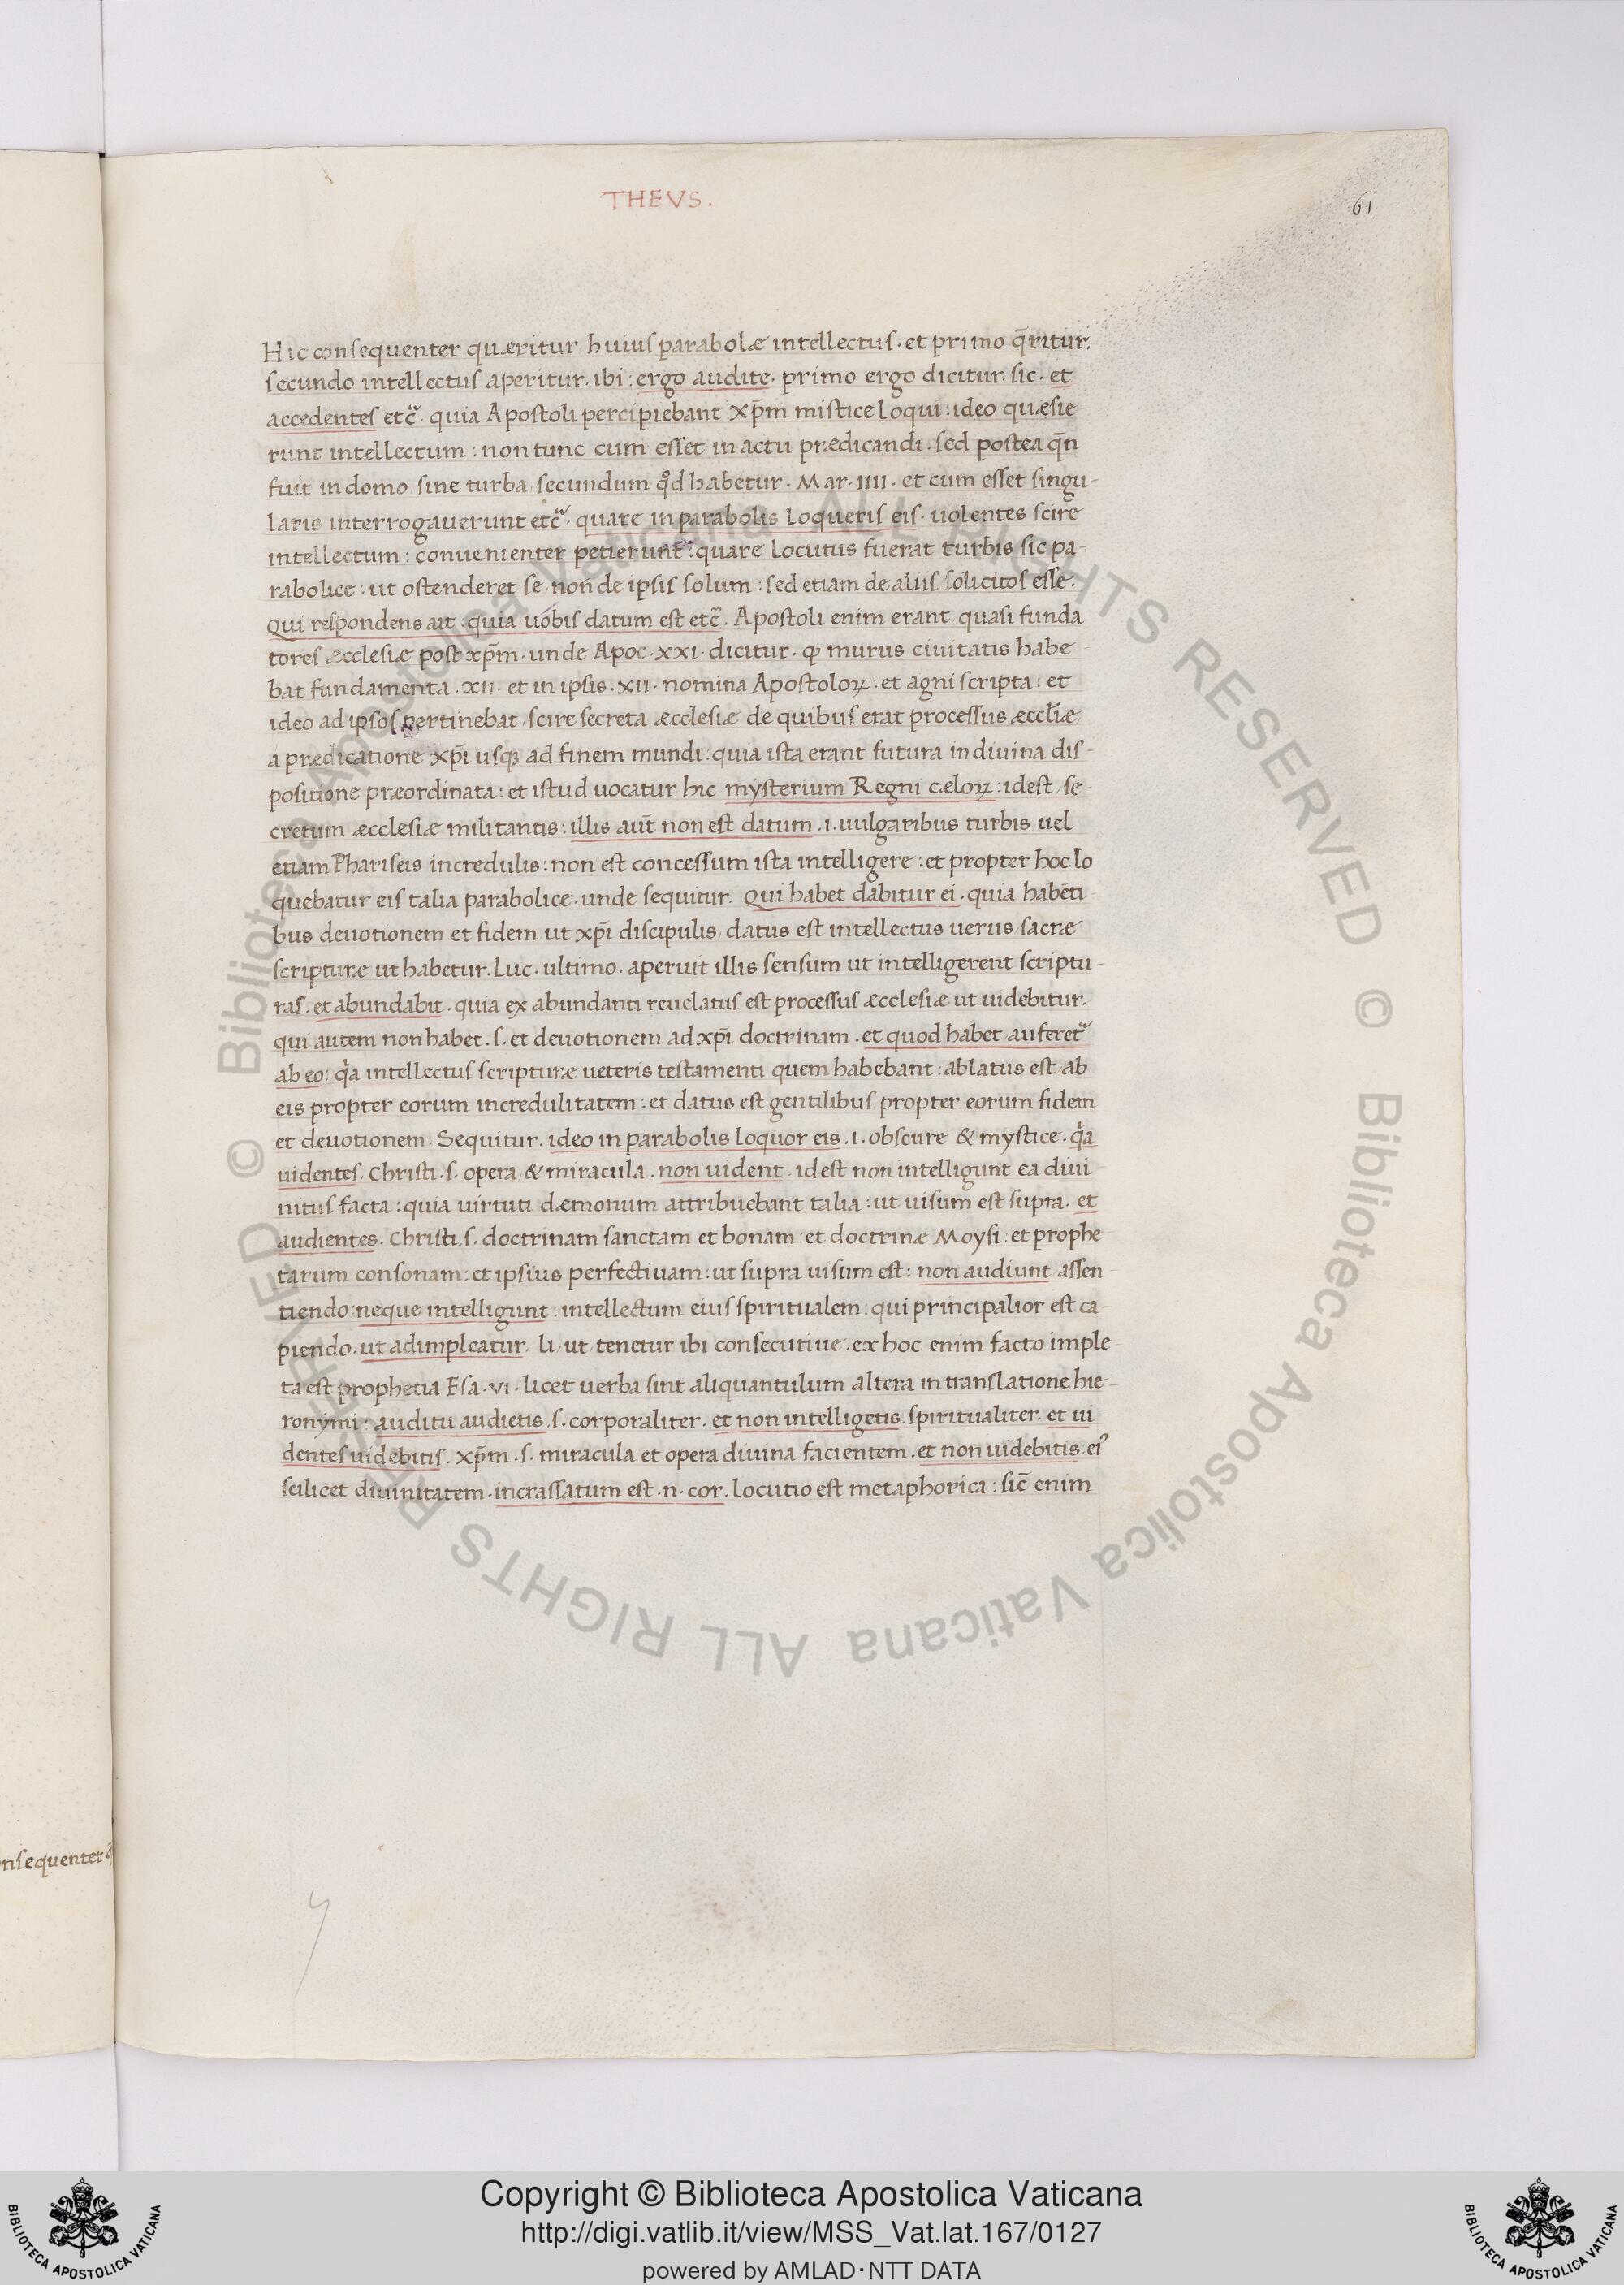 THEVS.
61
Hic consequenter quæritur huius parabolæ intellectus. et primo q̄ritur.
secundo intellectus aperitur. ibi: ergo audite. primo ergo dicitur. sic. et
accedentes etc̃. quia Apostoli percipiebant xp̄m mistice loqui: ideo quæsie-
runt intellectum: non tunc cum esset in actu prædicandi. sed postea q̄n
fuit in domo sine turba secundum qd̊ habetur. Mar. IIII. et cum esset singu-
laris interrogauerunt etc̃. quare in parabolis loqueris eis. uolentes scire
intellectum: conuenienter petierunt: quare locutus fuerat turbis sic pa-
rabolice: ut ostenderet se non de ipsis solum: sed etiam de aliis solicitos esse.
Qui respondens ait. quia uobis datum est etc̃. Apostoli enim erant quasi funda
tores æcclesiæ post xp̄m. unde Apoc. XXI. dicitur. ꝙ murus ciuitatis habe-
bat fundamenta. XII. et in ipsis. XII. nomina Apostoloꝝ: et agni scripta: et
ideo ad ipsos pertinebat scire secreta æcclesiæ de quibus erat processus æccl̄iæ
a prædicatione xp̄i usqꝫ ad finem mundi: quia ista erant futura in diuina dis-
positione præordinata: et istud uocatur hic mysterium Regni cæloꝝ: idest se-
cretum æcclesiæ militantis: illis aut̄ non est datum .i. uulgaribus turbis uel
etiam Phariseis incredulis: non est concessum ista intelligere: et propter hoc lo
quebatur eis talia parabolice. unde sequitur. Qui habet dabitur ei. quia habēti-
bus deuotionem et fidem ut xp̄i discipulis, datus est intellectus uerus sacræ
scripturæ ut habetur. Luc. ultimo. aperuit illis sensum ut intelligerent scriptu-
ras. et abundabit. quia ex abundanti reuelatus est processus æcclesiæ ut uidebitur.
qui autem non habet .s. et deuotionem ad xp̄i doctrinam. et quod habet auferet᷑
ab eo: qͥa intellectus scripturæ ueteris testamenti quem habebant: ablatus est ab
eis propter eorum incredulitatem: et datus est gentilibus propter eorum fidem
et deuotionem. Sequitur. ideo in parabolis loquor eis .i. obscure & mystice. qͥa
uidentes, Christi .s. opera & miracula. non uident. idest non intelligunt ea diui-
nitus facta: quia uirtuti dæmonum attribuebant talia: ut uisum est supra. et
audientes. Christi .s. doctrinam sanctam et bonam: et doctrinæ Moysi: et prophe
tarum consonam: et ipsius perfectiuam: ut supra uisum est: non audiunt assen-
tiendo: neque intelligunt: intellectum eius spiritualem: qui principalior est ca-
piendo. ut adimpleatur. li. ut tenetur ibi consecutiue. ex hoc enim facto imple-
ta est prophetia Esa. VI. licet uerba sint aliquantulum altera in translatione hie-
ronymi: auditu audietis .s. corporaliter. et non intelligetis spiritualiter. et ui-
dentes uidebitis. xp̄m .s. miracula et opera diuina facientem. et non uidebitis eiꝰ
scilicet diuinitatem. incrassatum est .n. cor. locutio est metaphorica: sic̄ enim
nsequenter
© Biblioteca Apostolica Vaticana ALL RIGHTS RESERVED
© Biblioteca Apostolica Vaticana ALL RIGHTS RESERVED
Copyright © Biblioteca Apostolica Vaticana
http://digi.vatlib.it/view/MSS_Vat.lat.167/0127
powered by AMLAD·NTT DATA
BIBLIOTECA APOSTOLICA VATICANA
BIBLIOTECA APOSTOLICA VATICANA